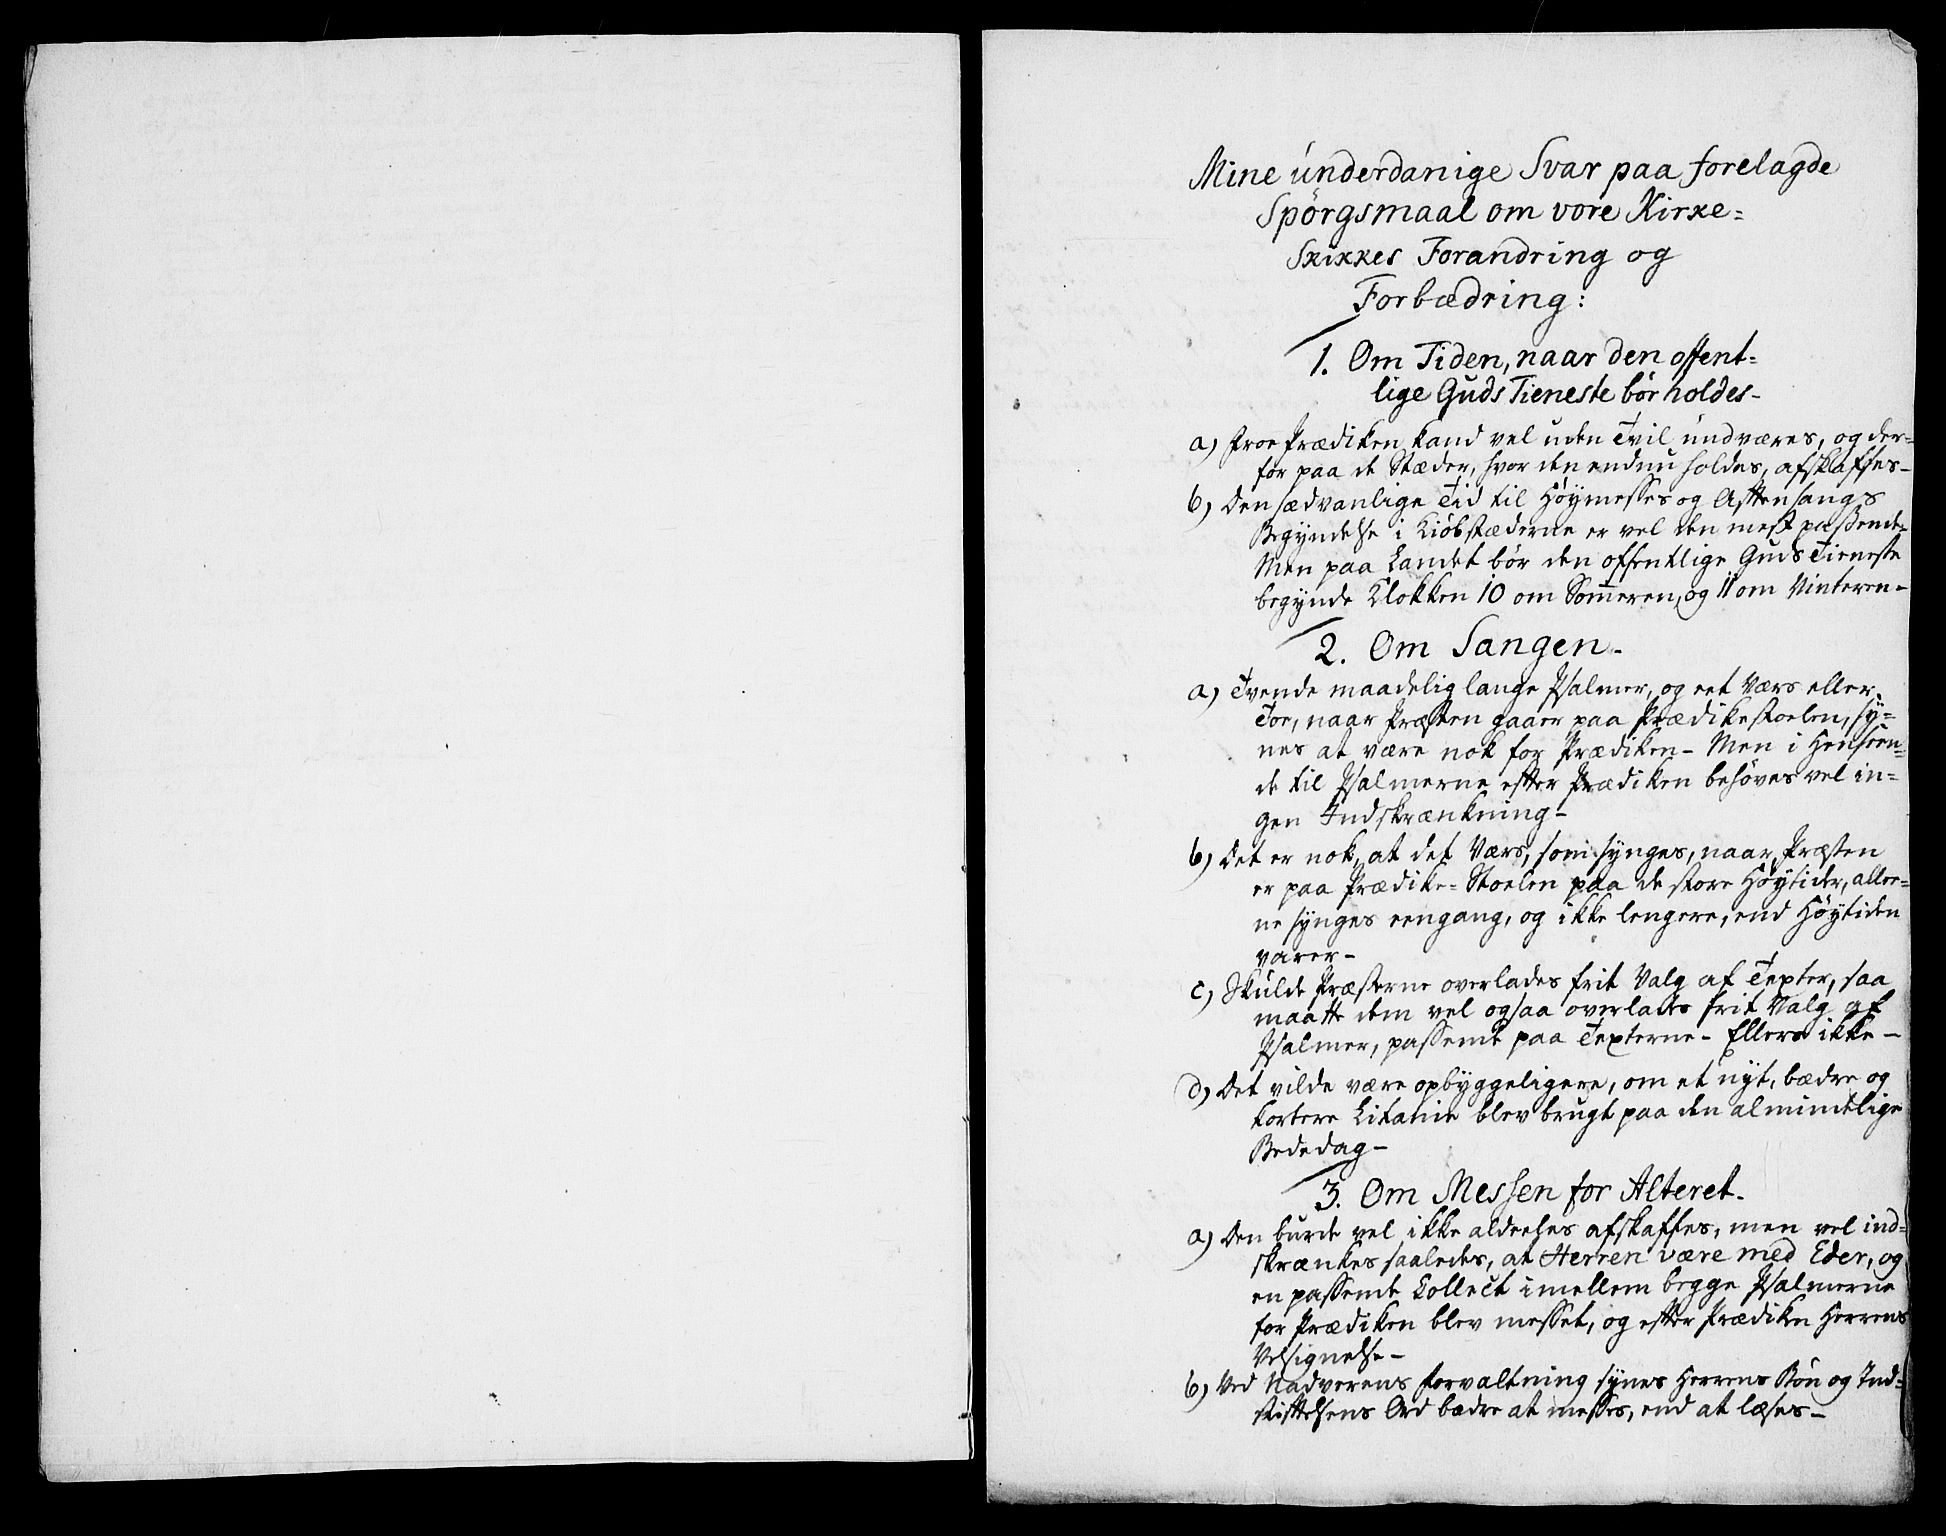 Mine underdanige Svar paa forelagde
Spörgsmaal om vore Kirke-
Skikkes Forandring og
Forbædring:
1. Om Tiden, naar den offent-
lige Guds Tieneste bör holdes-
a) Froe Prædiken kand vel uden Tvil undværes, og der-
for paa de Stæder, hvor den endnu holdes, afskaffes-
b) Den sædvanlige Tid til Höymesses og Aftensangs
Begyndelse i Kiöbstæderne er vel den mest passende-
Men paa Landet bör den offentlige Guds Tieneste
begynde Klokken 10 om Som̄eren, og 11 om Vinteren-
2. Om Sangen-
a) Tvende maadelig lange Psalmer, og eet Værs eller
Toe, naar Præsten gaaer paa Prædikestoelen, sy-
nes at være nok for Prædiken- Men i Henseen-
de til Psalmerne efter Prædiken behöves vel in-
gen Indskrænkning-
b) Det er nok, at det Værs, som synges, naar Præsten
er paa Prædike-Stoelen paa de store Höytider, allee-
ne synges eengang, og ikke lengere, end Höytiden
varer-
c) Skulde Præsterne overlades frit Valg af Texter, saa
maatte dem vel ogsaa overlades frit Valg af
Psalmer, passende paa Texterne- Ellers ikke-
d) Det vilde være opbyggeligere, om et nyt, bædre og
kortere Litanie blev brugt paa den almindelige
Bededag-
3. Om Messen for Alteret-
a) Den burde vel ikke aldeeles afskaffes, men vel ind-
skrænkes saaledes, at Herren være med Eder, og
en passende Collect imellem begge Psalmerne
for Prædiken blev messet, og efter Prædiken Herrens
Velsignelse-
b) Ved Nadverens Forvaltning synes Herrens Bön og Ind-
stiftelsens Ord bædre at messes, end at læses-